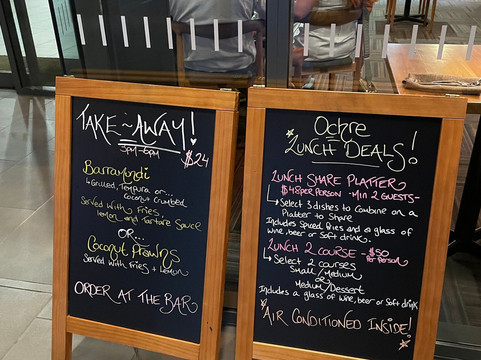 TAKE-AWAY!
3PM-6PM
$24
Barramundi
Grilled, Tempura or...
Coconut crumbed
Served with Fries,
lemon and Tartare Sauce
OR...
Coconut Prawns
Served with Fries + Lemon
ORDER AT THE BAR
Ochre
LUNCH DEALS!
LUNCH SHARE PLATTER
$45 PER PERSON - MIN 2 GUESTS -
Select 3 dishes to Combine on a
Platter to Share
Includes Spiced fries and a glass of
wine, beer or Soft drink.
LUNCH 2 COURSE - $50
Per person
Select 2 courses
Small/Medium
OR
Medium/Dessert
Includes a glass of wine, beer or Soft drink
AIR CONDITIONED INSIDE!